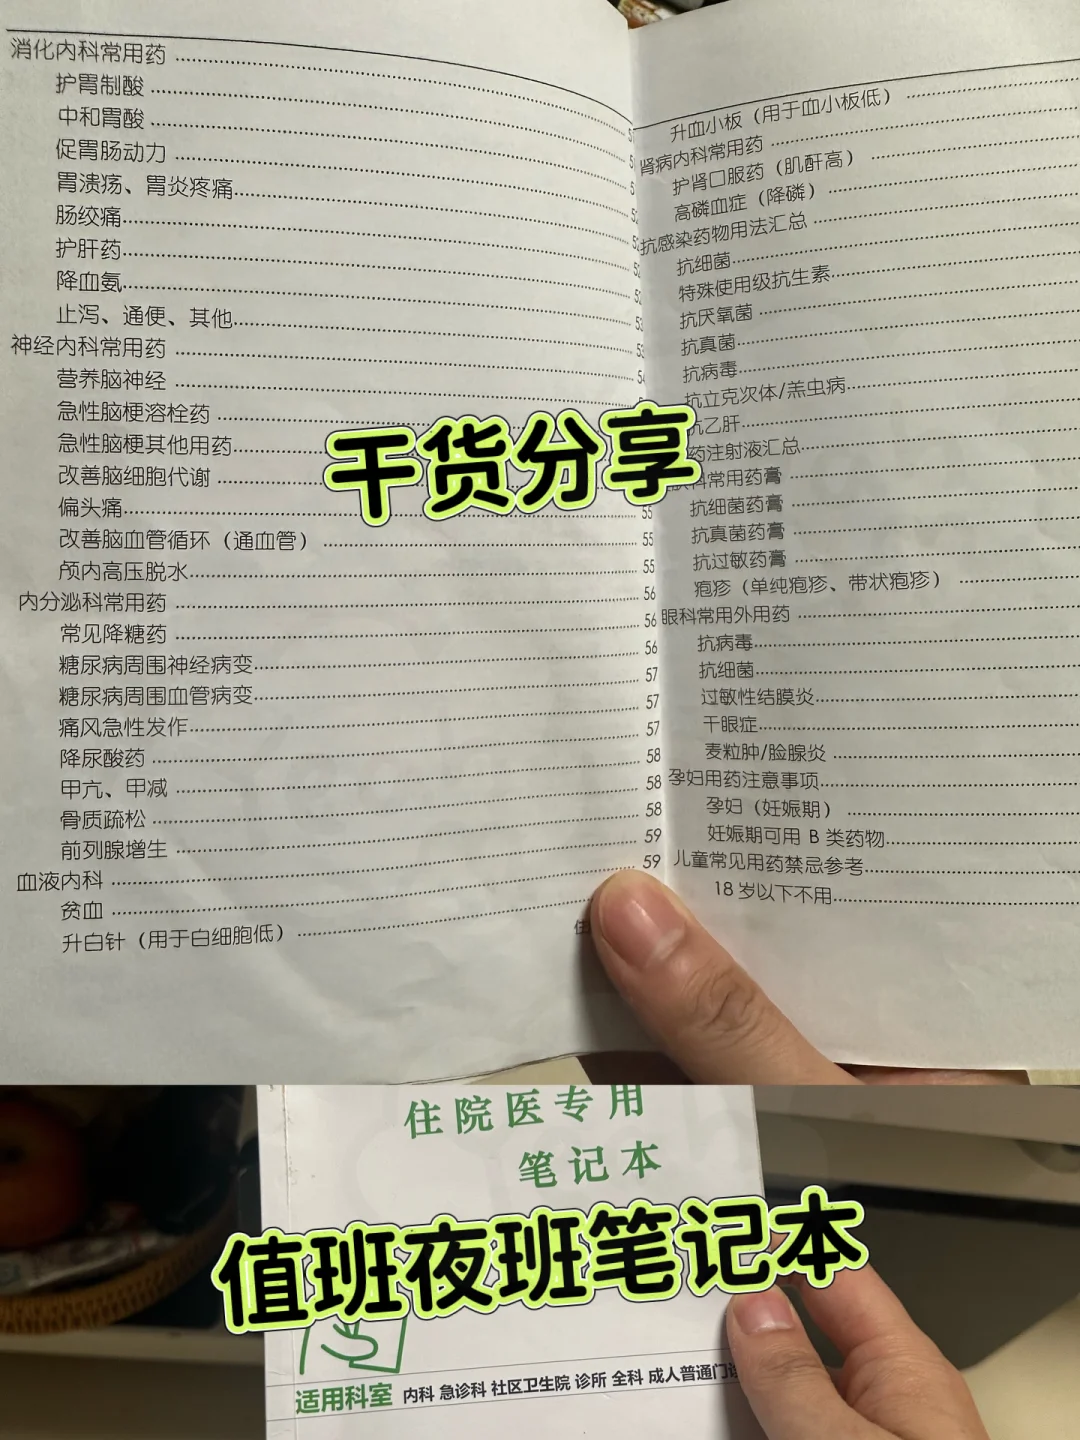 消化内科常用药
护胃制酸
中和胃酸
促胃肠动力
胃溃疡、胃炎疼痛
肠绞痛
护肝药
降血氨
止泻、通便、其他
神经内科常用药
营养脑神经
急性脑梗溶栓药
急性脑梗其他用药
改善脑细胞代谢
偏头痛 55
改善脑血管循环（通血管） 55
颅内高压脱水 55
内分泌科常用药 56
常见降糖药 56
糖尿病周围神经病变 56
糖尿病周围血管病变 57
痛风急性发作 57
降尿酸药 57
甲亢、甲减 58
骨质疏松 58
前列腺增生 58
血液内科 59
贫血 59
升白针（用于白细胞低）
升血小板（用于血小板低）
肾病内科常用药
护肾口服药（肌酐高）
高磷血症（降磷）
抗感染药物用法汇总
抗细菌
特殊使用级抗生素
抗厌氧菌
抗真菌
抗病毒
抗立克次体/恙虫病
抗乙肝
药注射液汇总
科常用药膏
抗细菌药膏
抗真菌药膏
抗过敏药膏
疱疹（单纯疱疹、带状疱疹）
眼科常用外用药
抗病毒
抗细菌
过敏性结膜炎
干眼症
麦粒肿/睑腺炎
孕妇用药注意事项
孕妇（妊娠期）
妊娠期可用 B 类药物
儿童常见用药禁忌参考
18 岁以下不用
干货分享
住院医专用
笔记本
值班夜班笔记本
适用科室 内科 急诊科 社区卫生院 诊所 全科 成人普通门诊